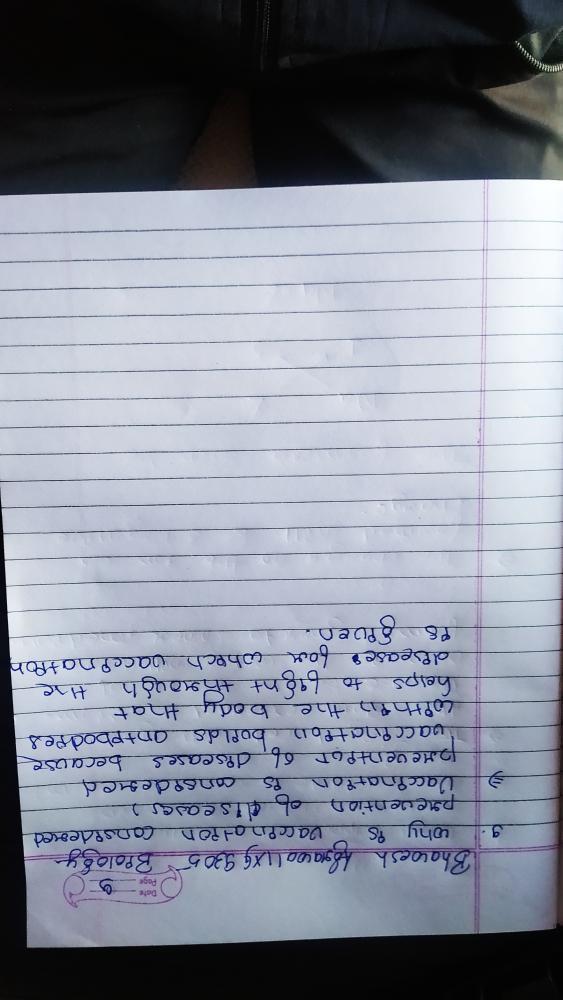 Date
Page 9
Bhavesh Agrawal IXG 9205 Biology
9. Why is vaccination considered
prevention of diseases?
⇒ Vaccination is considered
prevention of diseases because
vaccination builds antibodies
within the body that
helps to fight through the
disease for which vaccination
is given.